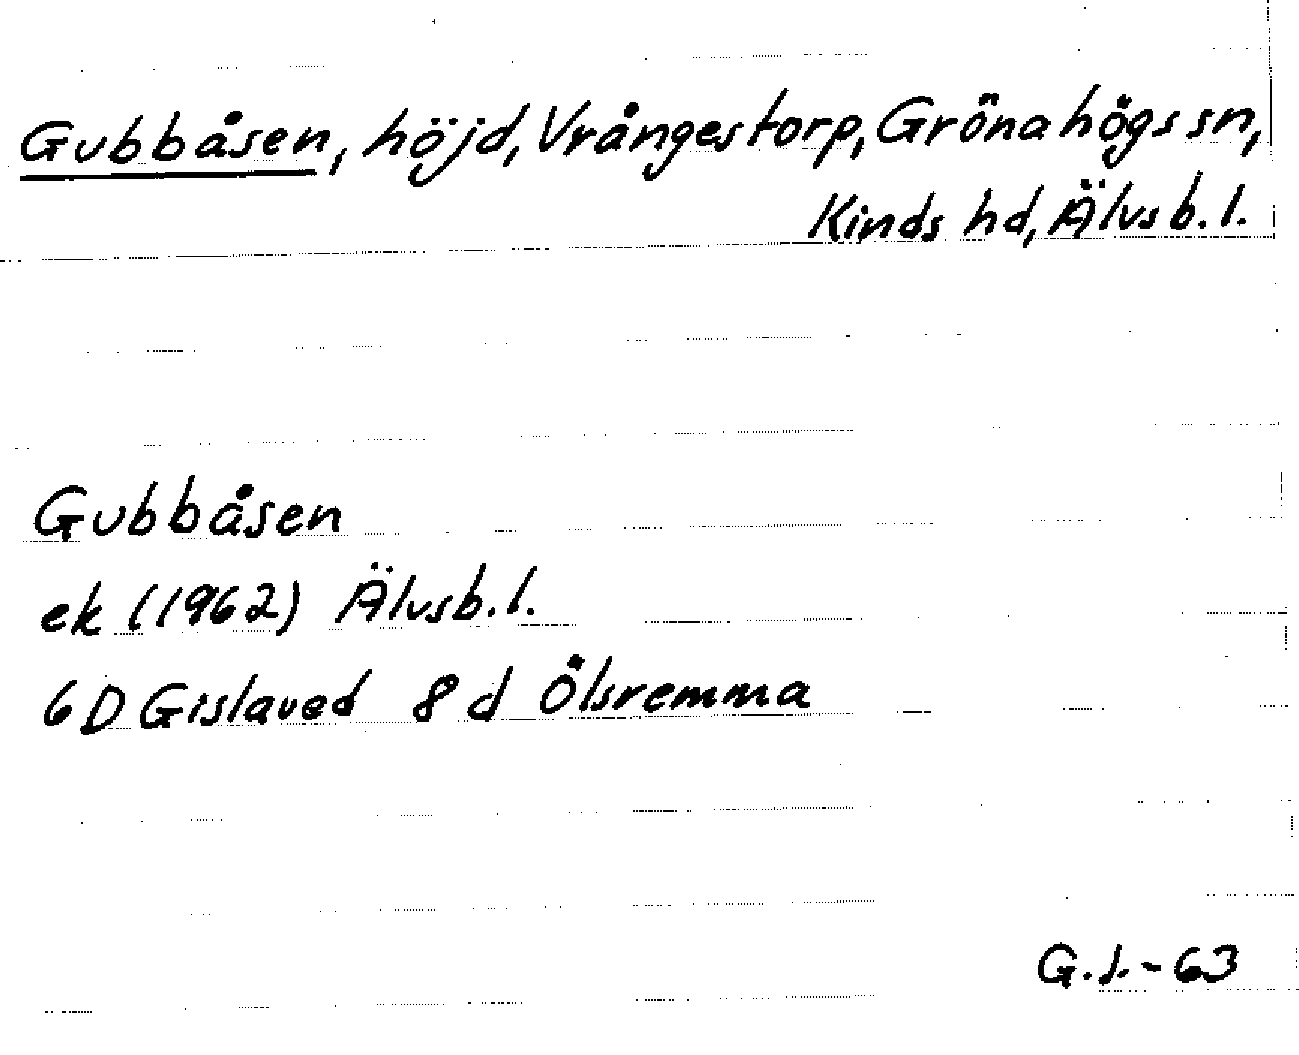 Gubbåsen, höjd, Vrångestorp, Grönahögs sn,
Kinds hd, Älvsb. l.
Gubbåsen
ek (1962) Älvsb. l.
6D Gislaved 8 d Ölsremma
G.J.-63